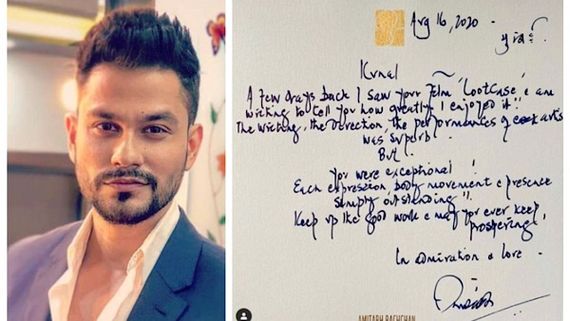 Aug 16, 2020 -
Kunal
A few days back I saw your film "Lootcase" & am
writing to tell you how greatly I enjoyed it !!
The writing, the direction, the performances of
was superb.
But ..
you were exceptional !
Each expression, body movement & presence
simply outstanding !!
Keep up the good work & may you ever keep
prospering !
In admiration & love -
AMITABH BACHCHAN